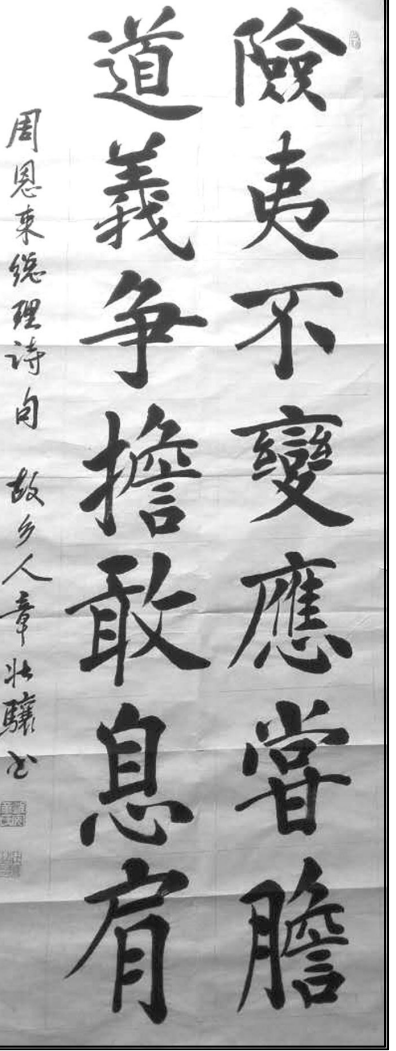 險夷不變應嘗膽
道義争擔敢息肩
周恩来總理诗句 故乡人章壮驤书